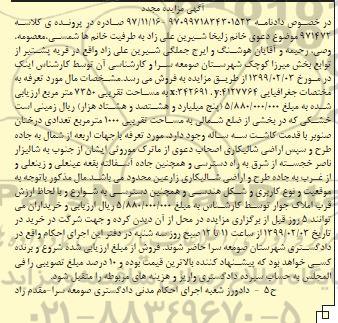 آگهی مزایده مجدد
در خصوص دادنامه ۹۷۰۹۹۷۱۸۳۴۳۰۱۵۲۳-۹۷/۱۱/۱۶ صادره در پرونده ی کلاسه
۹۷۱۴۷۲ موضوع دعوی خانم زلیخا شیرین علی زاد به طرفیت خانم ها شمسی،معصومه،
وصی، رحیمه و آقایان هوشنگ و ایرج جملگی شیرین علی زاد واقع در قریه پشتیر از
توابع بخش میرزا کوچک شهرستان صومعه سرا و کارشناسی آن توسط کارشناس اینک
در مورخ ۱۳۹۹/۰۲/۰۳ از طریق مزایده به فروش می رسد.مشخصات مال مورد تعرفه به
مختصات جغرافیایی x:۳۴۲۶۹۱،y:۴۱۳۷۷۶۴ به مساحت تقریبی ۷۳۵۰ متر مربع ارزیابی
شده به مبلغ ۵/۸۸۰/۰۰۰/۰۰۰ (پنج میلیارد و هشتصد و هشتاد هزار) ریال زمینی است
خشکی که در بخشی از ضلع شمالی به مساحت تقریبی ۱۰۰۰ مترمربع تعدادی درختان
صنوبر با قدمت کاشت سه ساله وجود دارد. مورد تعرفه با جهات اربعه از شمال به جاده
طرح و سپس اراضی شالیکاری اصحاب دعوی از ماترک موروثی ایشان از جنوب به شالیزار
ناصر خجسته از شرق به راه دسترسی و همچنین جاده آسفالته بقعه عینعلی و زینعلی و
از غرب به جاده طرح و اراضی شالیکاری زارعین محدود می باشد.مال مذکور باتوجه به
موقعیت و نوع کاربری و شکل هندسی و همچنین دسترسی به شوارع و با لحاظ ارزش
قرب املاک جوار توسط کارشناس به مبلغ ۵/۸۸۰/۰۰۰/۰۰۰ ریال ارزیابی و خریداران می
توانند ۵ روز قبل از برگزاری مزایده در محل از آن دیدن کرده و جهت شرکت در خرید در
تاریخ ۱۳۹۹/۰۲/۰۳ از ساعت ۱۱ تا ۱۲ صبح روز سه شنبه در دفتر این اجرای احکام واقع در
دادگستری شهرستان صومعه سرا حاضر شوند. فروش از مبلغ ارزیابی شده شروع و برنده
کسی خواهد بود که پیشنهاد کننده بالاترین قیمت بوده و ۱۰ درصد مبلغ تصویبی را فی
المجلس به حساب سپرده دادگستری واریز و هزینه های مربوطه را متقبل شود.
ح۵ - دادورز شعبه اجرای احکام مدنی دادگستری صومعه سرا-مقدم راد
۰۲۱-۸۸۳۴۹۶۷۰-۵